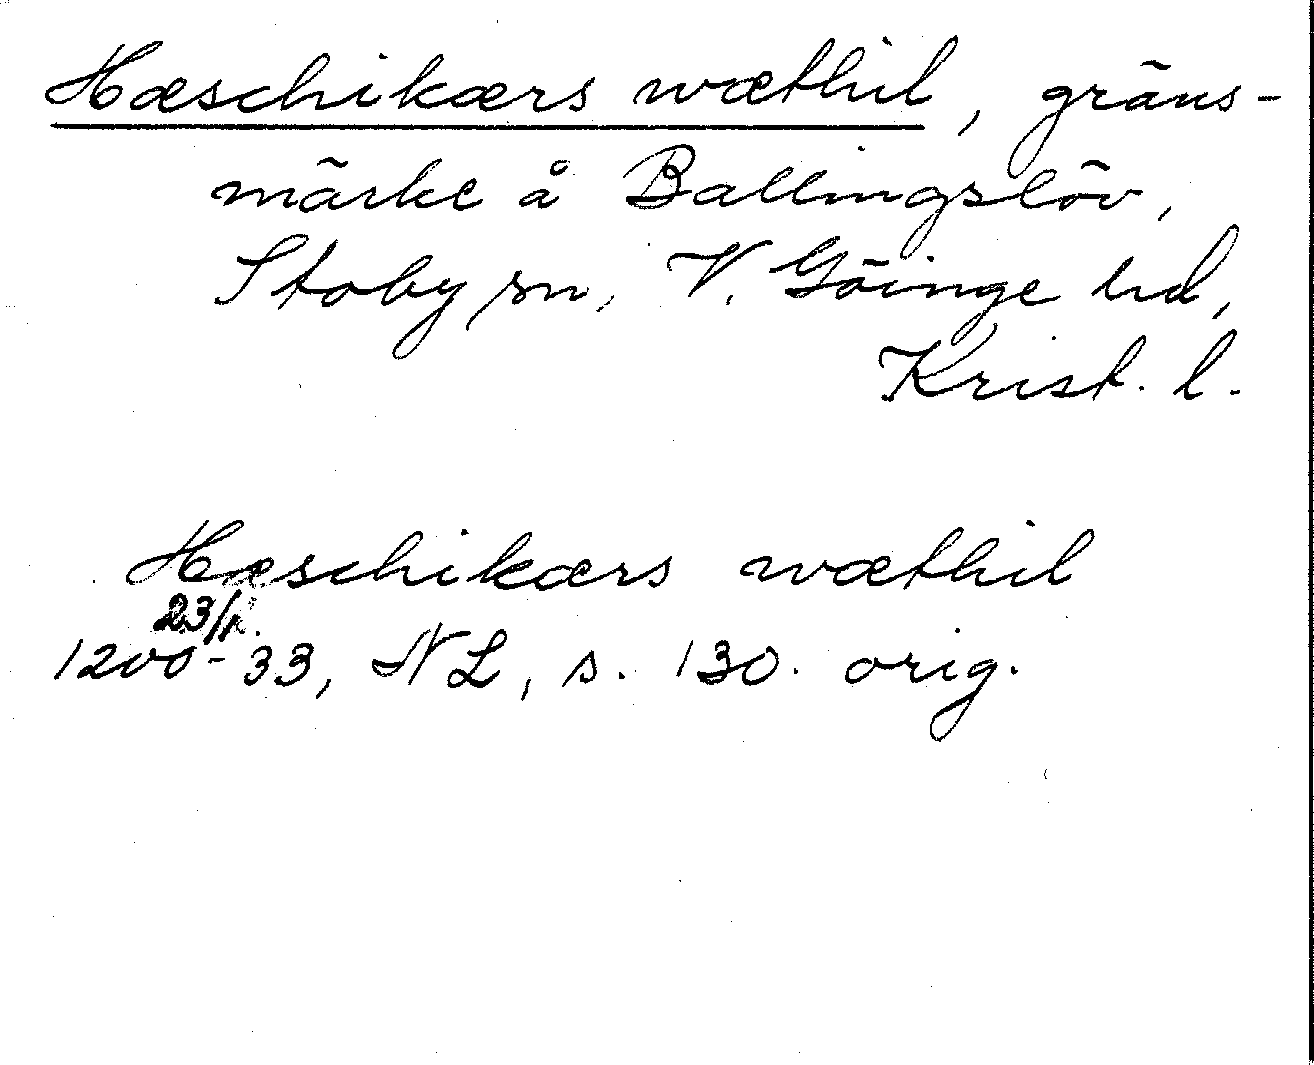 Hæschikærs wæthil, gräns-
märke å Ballingslöv,
Stoby sn, V. Göinge hd,
Krist. l.
Hæschikærs wæthil
23/12.
1200-33, NL, s. 130. orig.